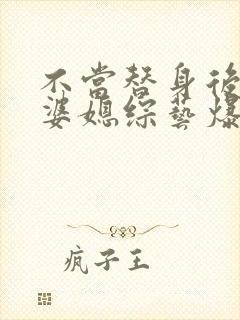 不當替身後
婆媳綜藝爆
疯子王